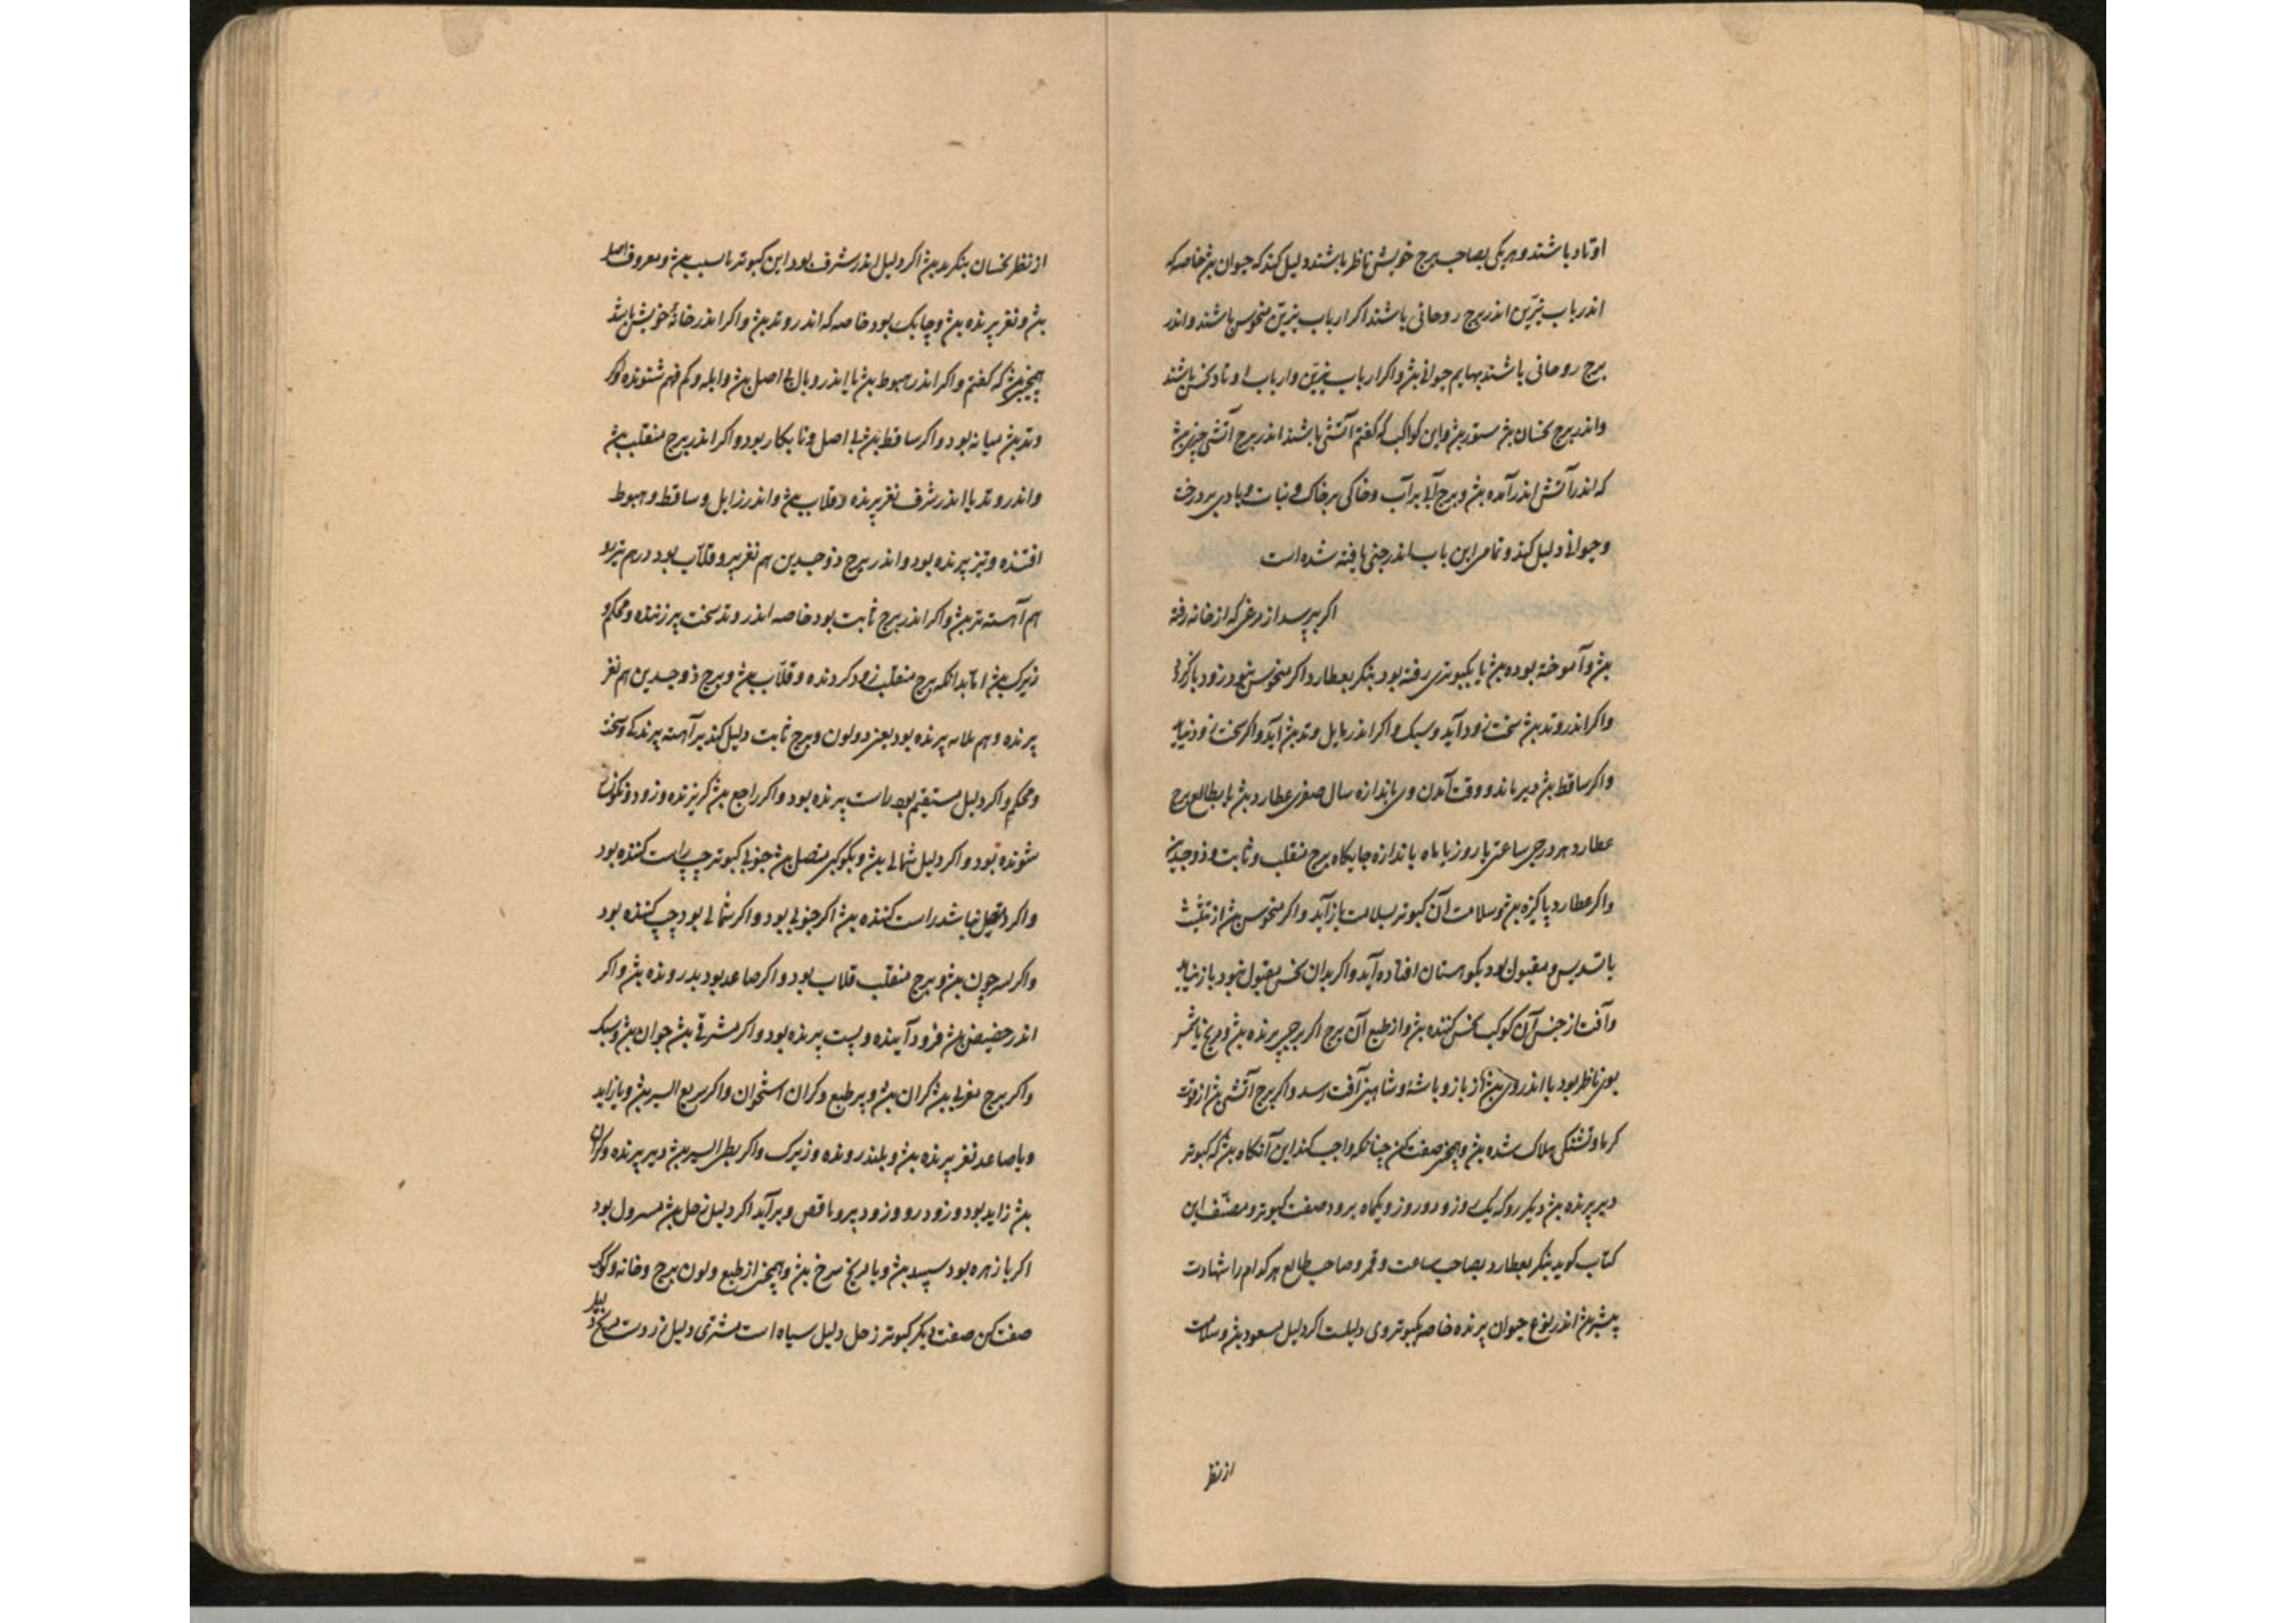 اوتاد باشند و هر یکی بصاحب برج خویش ناظر باشند دلیل کند که حیوان بش خاصه که
اندر باب نیرین اندر برج روحانی باشند اکر ارباب نیرین منحوس باشند و اندر
برج روحانی باشند بهایم حیوانی بش و اکر ارباب نیرین و ارباب اوتاد نحس باشند
و اندر برج نحسان بش ستور بش و این کواکب که کفتم آتشی باشند اندر برج آتشی چیزی بش
که اندر آتش اندر آمده بش و برج آبی بر آب و خاکی بر خاک و نبات و بادی بر درخت
و حیوانی دلیل کند و تمامی این باب اندر یافته شده است
اکر بپرسد از مرغی که از خانه رفته
بش و آموخته بوده بش یا بکبوتری رفته بود بنکر بعطارد اکر منحوس زود باز کردد
و اکر اندر وتد بش سخت زود آید و سبک و اکر اندر مایل وتد بش آید و اکر سخت زود نیاید
و اکر ساقط بش دیر ماند و وقت آمدن وی باندازه سال صغری عطارد بش یا بمطالع برج
عطارد هر درجی ساعتی یا روز یا ماه باندازه جایکاه برج منقلب و ثابت و ذوجسدین
و اکر عطارد پاکیزه بش و سلامت آن کبوتر بسلامت باز آید و اکر منحوس بش از تثلیث
یا تسدیس و مقبول بود بکوهستان افتاده آید و اکر بدان نحس مقبول نبود باز نیاید
و آفت از جنس آن کوکب نحس کننده بش و از طبع آن برج اکر برجی پرنده بش و مریخ یا شمس
بوی ناظر بود یا اندر وی بش از باز و باشه و شاهین آفت رسد و اکر برج آتشی بش از قوت
کرما و تشنکی هلاک شده بش و همچنین صفت کن چنانکه واجب کند این آنکاه بش که کبوتر
دیر پرنده بش دیکر رو که یک روز و دو روز و یکماه برود صفت کبوتر و مصنف این
کتاب کوید بنکر بعطارد بصاحب ساعت و قمر و صاحب طالع هر کدام را شهادت
بیشتر بش اندر نوع حیوان پرنده خاصه بکبوتر وی دلیلست اکر دلیل مسعود بش و سلامت
از نظر
از نظر نحسان بنکرید بش اکر دلیل اندر شرف بود این کبوتر با سبب بش و معروف اصل
بش و نغز پرنده بش و چابک بود خاصه که اندر وتد بش و اکر اندر خانهٔ خویش باشد
همچنین بش که کفتم و اکر اندر هبوط بش یا اندر وبال بی اصل بش و ابله و کم فهم شنونده و اکر
وتد بش میانه بود و اکر ساقط بش بی اصل و نابکار بود و اکر اندر برج منقلب بش
و اندر وتد یا اندر شرف نغز پرنده و قلاب بش و اندر زایل و ساقط و هبوط
افتنده و تیز پرنده بود و اندر برج ذوجسدین هم نغز پر و قلاب بود در هم نیز بود
هم آهسته تر بش و اکر اندر برج ثابت بود خاصه اندر وتد سخت پر زننده و محکم و
زیرک بش اما بدانکه برج منقلب زود کردنده و قلاب بش و برج ذوجسدین هم نغز
پرنده و هم پرنده بود یعنی دو لون و برج ثابت دلیل کند بر آهسته پرندکی و سخت
و محکم و اکر دلیل مستقیم بود راست پرنده بود و اکر راجع بش کریزنده و زود
شونده بود و اکر دلیل شمالی بش و بکوکبی متصل بش جنوبی کبوتر چپ راست کننده بود
و اکر متصل نباشد راست کننده بش اکر جنوبی بود و اکر شمالی بود چپ کننده بود
و اکر بش و برج منقلب قلاب بود و اکر صاعد بود بدر رونده بش و اکر
اندر حضیض بش فرود آینده و پست پرنده بود و اکر مشرقی بش جوان بش و سبک
و اکر برج مغربی بش کران بش و پر طبع و کران استخوان و اکر سریع السیر بش و یا زاید
و یا صاعد نغز پرنده بش و بلند رونده و زیرک و اکر بطی السیر بش دیر پرنده و کران
بش زاید بود و زود رو و زود پر و ناقص و بر آید اکر دلیل زحل بش بود
اکر با زهره بود سپید بش و با مریخ سرخ بش و همچنین از طبع و لون برج و خانه و کوکب
صفت کن صفت دیکر کبوتر زحل دلیل سیاه است مشتری دلیل زردست مریخ